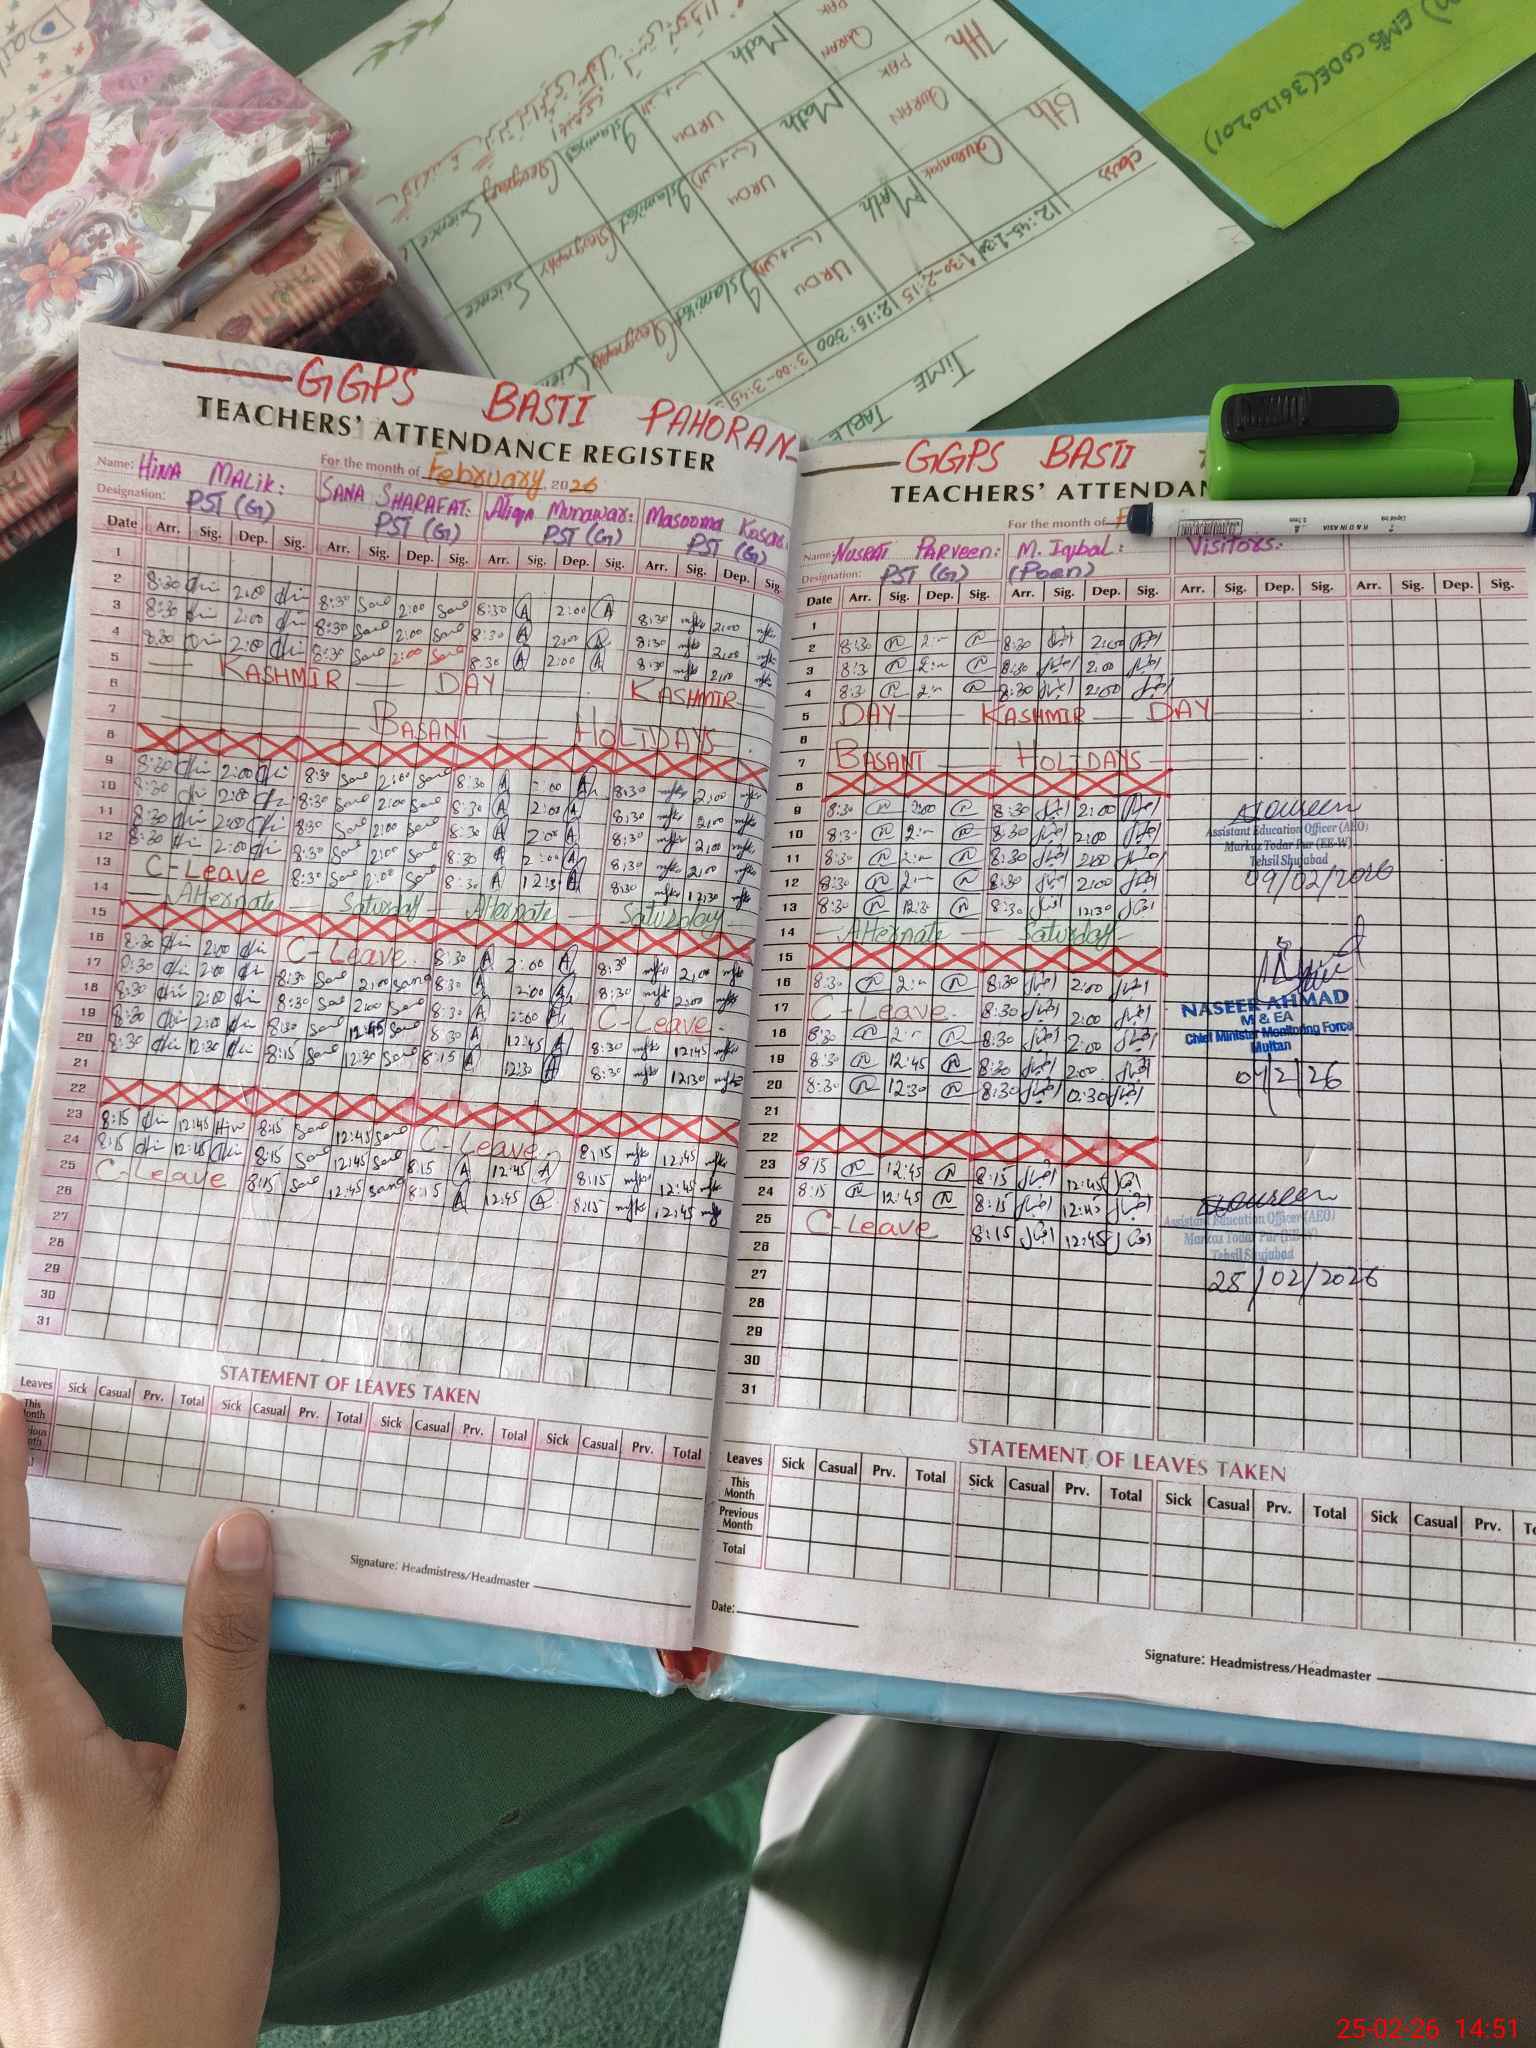 EMIS CODE(36120201)
TIME TABLE
class 12:45-1:30 1:30-2:15 2:15:3:00 3:00-3:45
6th Quran pak Math URDU Islamiat Geography Science
7th QURAN PAK Math URDU Islamiat Geography Science
GGPS BASTI PAHORAN
TEACHERS' ATTENDANCE REGISTER
For the month of February 2026
Name: HINA MALIK: SANA SHARAFAT: Aliqa Munawar: Masooma Kosar:
Designation: PST (G) PST (G) PST (G) PST (G)
Date Arr. Sig. Dep. Sig. Arr. Sig. Dep. Sig. Arr. Sig. Dep. Sig. Arr. Sig. Dep. Sig.
1
2 8:30 2:00 8:30 Sana 2:00 Sana 8:30 A 2:00 A 8:30 mks 2:00 mks
3 8:30 2:00 8:30 Sana 2:00 Sana 8:30 A 2:00 A 8:30 mks 2:00 mks
4 8:30 2:00 8:30 Sana 2:00 Sana 8:30 A 2:00 A 8:30 mks 2:00 mks
5 KASHMIR DAY KASHMIR
6
7 BASANT HOLIDAYS
8
9 8:30 2:00 8:30 Sana 2:00 Sana 8:30 A 2:00 A 8:30 mks 2:00 mks
10 8:30 2:00 8:30 Sana 2:00 Sana 8:30 A 2:00 A 8:30 mks 2:00 mks
11 8:30 2:00 8:30 Sana 2:00 Sana 8:30 A 2:00 A 8:30 mks 2:00 mks
12 8:30 2:00 8:30 Sana 2:00 Sana 8:30 A 2:00 A 8:30 mks 2:00 mks
13 C-Leave 8:30 Sana 2:00 Sana 8:30 A 12:30 A 8:30 mks 12:30 mks
14 Alternate Saturday Alternate Saturday
15
16 8:30 2:00 C-Leave. 8:30 A 2:00 A 8:30 mks 2:00 mks
17 8:30 2:00 8:30 Sana 2:00 Sana 8:30 A 2:00 A 8:30 mks 2:00 mks
18 8:30 2:00 8:30 Sana 2:00 Sana 8:30 A 2:00 A C-Leave.
19 8:30 2:00 8:30 Sana 12:45 Sana 8:30 A 12:45 A 8:30 mks 12:45 mks
20 8:30 12:30 8:15 Sana 12:30 Sana 8:15 A 12:30 A 8:30 mks 12:30 mks
21
22
23 8:15 12:45 8:15 Sana 12:45 Sana C-Leave. 8:15 mks 12:45 mks
24 8:15 12:45 8:15 Sana 12:45 Sana 8:15 A 12:45 A 8:15 mks 12:45 mks
25 C-Leave 8:15 Sana 12:45 Sana 8:15 A 12:45 A 8:15 mks 12:45 mks
26
27
28
29
30
31
STATEMENT OF LEAVES TAKEN
Leaves Sick Casual Prv. Total Sick Casual Prv. Total Sick Casual Prv. Total Sick Casual Prv. Total
This
Signature: Headmistress/Headmaster
GGPS BASTI
TEACHERS' ATTENDAN
For the month of F
Name: NUSRAT PARVEEN: M. Iqbal: Visitors:
Designation: PST (G) (Poen)
Date Arr. Sig. Dep. Sig. Arr. Sig. Dep. Sig. Arr. Sig. Dep. Sig. Arr. Sig. Dep. Sig.
1
2 8:30 N 2:00 N 8:30 اقبال 2:00 اقبال
3 8:30 N 2:00 N 8:30 اقبال 2:00 اقبال
4 8:30 N 2:00 N 8:30 اقبال 2:00 اقبال
5 DAY KASHMIR DAY
6
7 BASANT HOLIDAYS
8
9 8:30 N 2:00 N 8:30 اقبال 2:00 اقبال
10 8:30 N 2:00 N 8:30 اقبال 2:00 اقبال
11 8:30 N 2:00 N 8:30 اقبال 2:00 اقبال
12 8:30 N 2:00 N 8:30 اقبال 2:00 اقبال
13 8:30 N 12:30 N 8:30 اقبال 12:30 اقبال
14 Alternate Saturday
15
16 8:30 N 2:00 N 8:30 اقبال 2:00 اقبال
17 C-Leave. 8:30 اقبال 2:00 اقبال
18 8:30 N 2:00 N 8:30 اقبال 2:00 اقبال
19 8:30 N 12:45 N 8:30 اقبال 2:00 اقبال
20 8:30 N 12:30 N 8:30 اقبال 12:30 اقبال
21
22
23 8:15 N 12:45 N 8:15 اقبال 12:45 اقبال
24 8:15 N 12:45 N 8:15 اقبال 12:45 اقبال
25 C-Leave 8:15 اقبال 12:45 اقبال
26
27
28
29
30
31
Assistant Education Officer (AEO)
Markaz Todar Pur (EE-W)
Tehsil Shujabad
09/02/2026
NASEER AHMAD
M & EA
Chief Minister Monitoring Force
Multan
Assistant Education Officer (AEO)
Markaz Todar Pur (EE-W)
Tehsil Shujabad
25/02/2026
STATEMENT OF LEAVES TAKEN
Leaves Sick Casual Prv. Total Sick Casual Prv. Total Sick Casual Prv. Total Sick Casual Prv.
This Month
Previous Month
Total
Date:
Signature: Headmistress/Headmaster
25-02-26 14:51